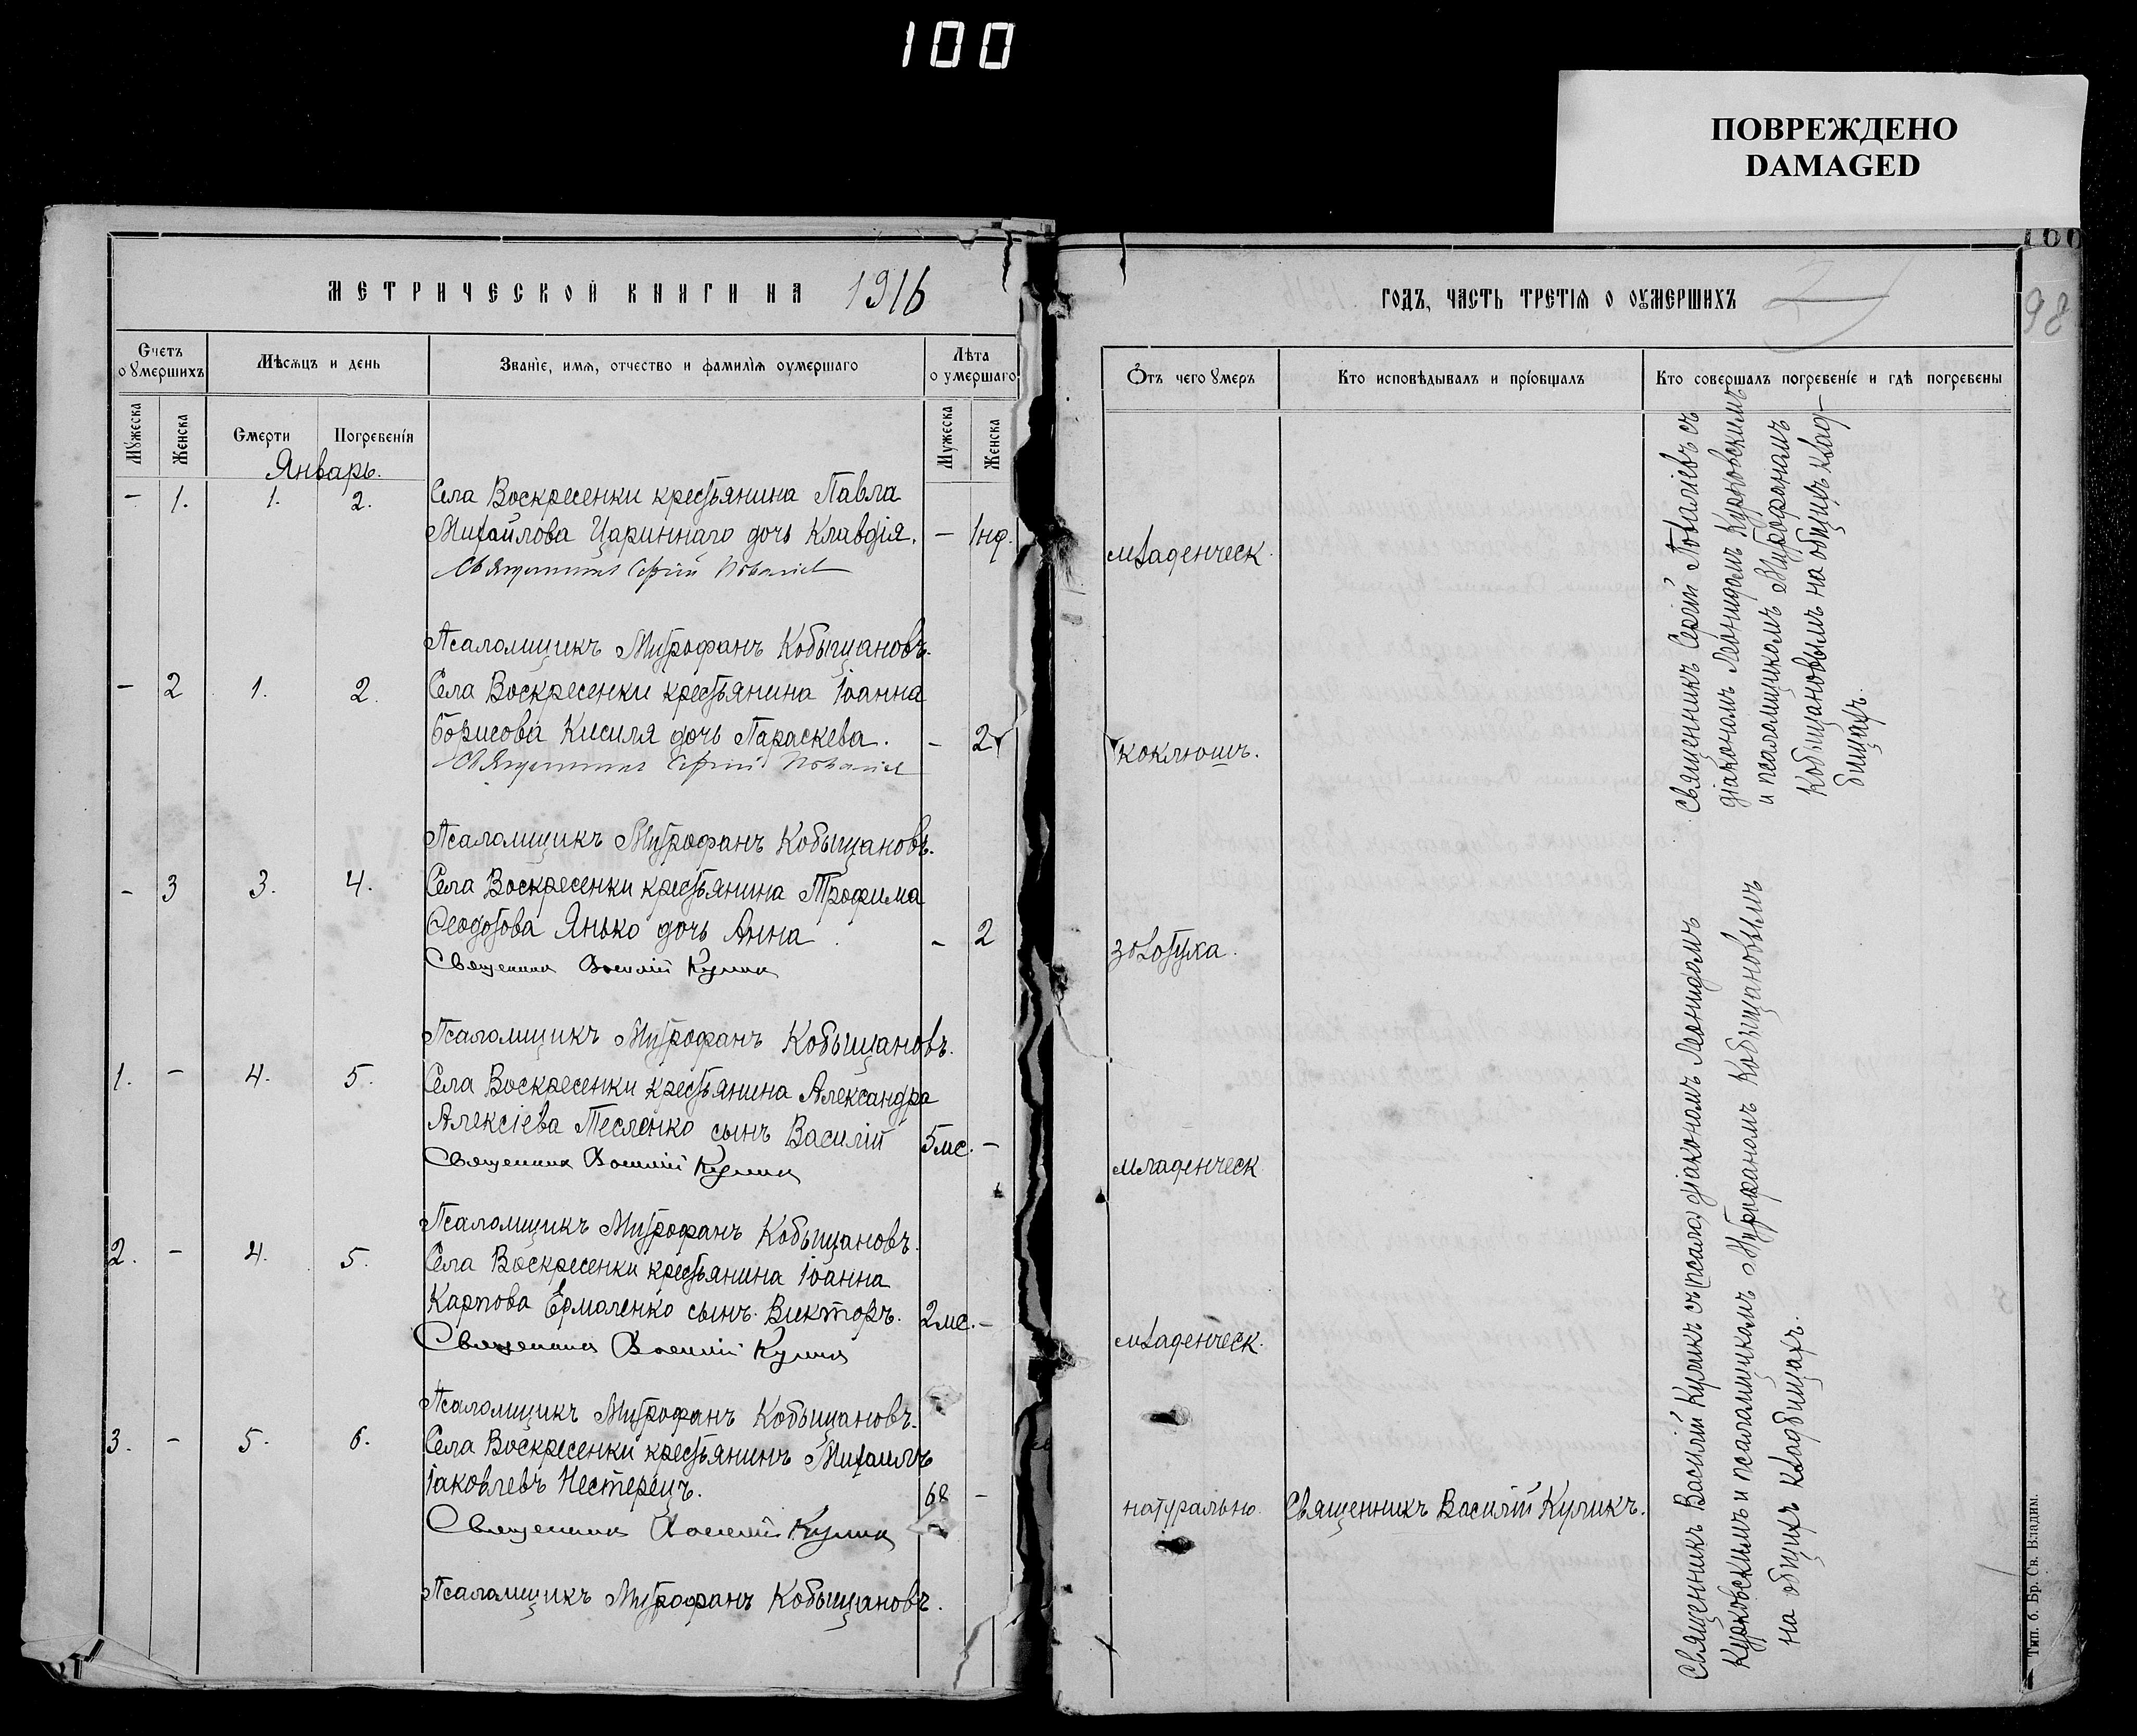 100
ПОВРЕЖДЕНО
DAMAGED
МЕТРИЧЕСКОЙ КНИГИ НА 1916
Счетъ оумершихъ
Мѣсяцъ и день
Званіе, имя, отчество и фамилія оумершаго
Лѣта оумершаго
Мужеска
Женска
Смерти
Погребенія
Мужеска
Женска
Январь.
- 1. 1. 2. Села Воскресенки крестьянина Павла
Михайлова Цариннаго дочь Клавдія. - 1нд.
Священникъ Сергій Поваліевъ
Псаломщикъ Митрофанъ Кобыщановъ.
- 2 1. 2. Села Воскресенки крестьянина Іоанна
Борисова Кисиля дочь Параскева. - 2
Священникъ Сергій Поваліевъ
Псаломщикъ Митрофанъ Кобыщановъ.
- 3 3. 4. Села Воскресенки крестьянина Трофима
Феодотова Янько дочь Анна. - 2
Священникъ Василій Куликъ
Псаломщикъ Митрофанъ Кобыщановъ.
1. - 4. 5. Села Воскресенки крестьянина Александра
Алексіева Тесленко сынъ Василій 5мс. -
Священникъ Василій Куликъ
Псаломщикъ Митрофанъ Кобыщановъ.
2. - 4. 5. Села Воскресенки крестьянина Іоанна
Карпова Ермоленко сынъ Викторъ. 2мс. -
Священникъ Василій Куликъ
Псаломщикъ Митрофанъ Кобыщановъ.
3. - 5. 6. Села Воскресенки крестьянинъ Михаилъ
Іаковлевъ Нестерецъ. 68 -
Священникъ Василій Куликъ
Псаломщикъ Митрофанъ Кобыщановъ.
100
98
ГОДЪ, ЧАСТЬ ТРЕТІЯ О ОУМЕРШИХЪ
2
Отъ чего умеръ
Кто исповѣдывалъ и пріобщалъ
Кто совершалъ погребеніе и гдѣ погребены
младенческ.
коклюшъ.
золотуха.
младенческ
младенческ.
натурально. Священникъ Василій Куликъ.
Священникъ Сергій Поваліевъ съ
діакономъ Леонидомъ Курковскимъ
и псаломщикомъ Митрофаномъ
Кобыщановымъ на общихъ клад-
бищахъ.
Священникъ Василій Куликъ съ діакономъ Леонидомъ
Курковскимъ и псаломщикомъ Митрофаномъ Кобыщановымъ
на общихъ кладбищахъ.
Тип. б. Бр. Св. Владим.